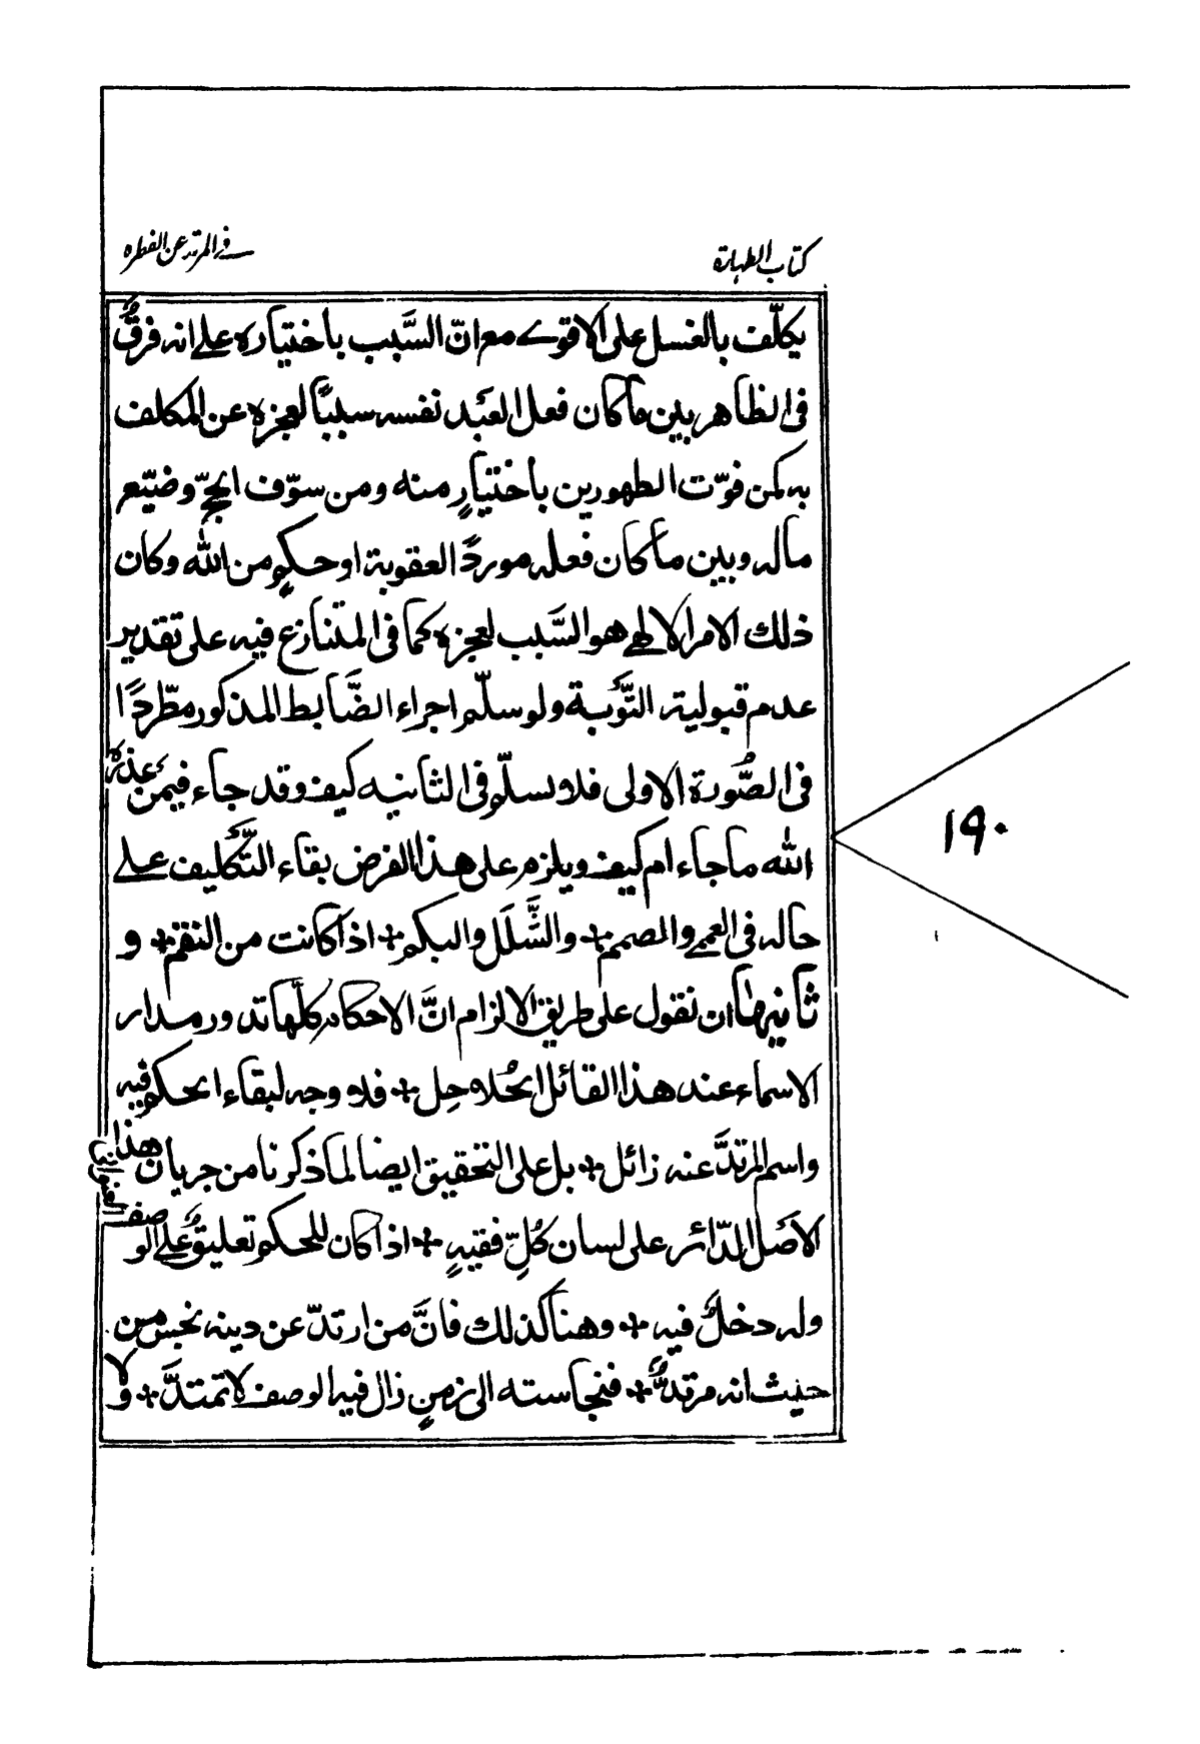 كتاب الطهارة
في المرتد عن الفطره
يكلّف بالغسل على الاقوے مع انّ السَّبب باختياره علے انه فرقٌ
فى الظاهر بين ما كان فعل العَبد نفسه سببًا لعجزه عن المكلف
به كمن فوّت الطهورين باختيارٍ منه ومن سوّف الحجّ وضيّع
ماله وبين ما كان فعله موردً العقوبة او حكمٍ من الله وكان
ذلك الامر الالهے هو السَّبب لعجزه كما فى المتنازع فيه على تقدير
عدم قبولية التَّوبة ولو سلّم اجراء الضَّابط المذكور مطّردًا
فى الصُّورة الاولى فلا نسلّم فى الثانيه كيف وقد جاء فيمن عذره
الله ما جاء ام كيف ويلزم على هذا الفرض بقاء التَّكليف علے
حاله فى العمے والصمم + والشَّلَل والبكم + اذا كانت من النقم + و
ثانيهما ان نقول على طريق الالزام انَّ الاحكام كلّها تدور مدار
الاسماء عند هذا القائل الحُلاحِل + فلا وجه لبقاء الحكم فيه
واسم المرتدَّ عنه زائل + بل على التحقيق ايضا لما ذكرنا من جريان هذا
الاصَل الدّائر على لسان كُلِّ فقيهٍ + اذا كان للحكم تعليقٌ علے الوصف
وله دخلٌ فيه + وهنا كذلك فانَّ من ارتدّ عن دينه نجس من
حيث انه مرتدٌّ + فنجاسته الى زمنٍ زال فيه الوصف لا تمتدَّ + ولا
١٩٠